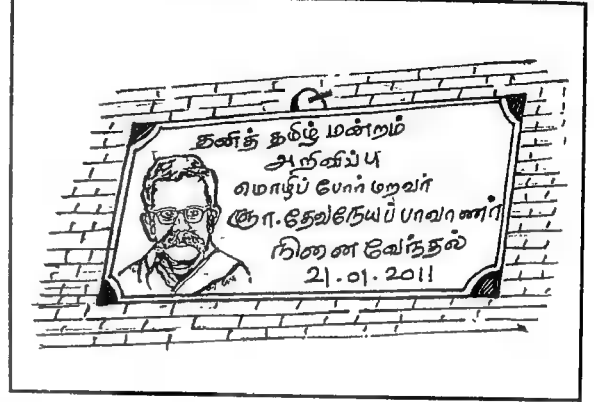 தனித் தமிழ் மன்றம்
அறிவிப்பு
மொழிப் போர் மறவர்
ஞா.தேவநேயப் பாவாணர்
நினைவேந்தல்
21.01.2011